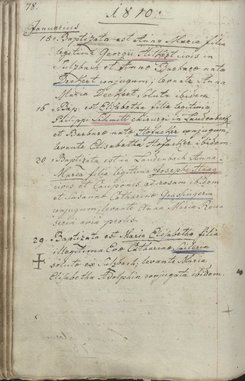 78.
1810.
Januarius
18. Baptizata est Anna Maria filia
legitima Georgii Hilbert civis in
Sulzbach et Annae Barbarae nata
conjugum, levante Anna
Maria Deckert, soluta ibidem
16 Bap. est Elisabetha filia legitima
Philippi Schmitt chirurgi in Laudenbach
et Barbarae nata Hofacker conjugum,
levante Elisabetha Hofacker ibidem
20 Baptizata est in Laudenbach Anna
Maria filia legitima Josephi Haag
civis et Cauponis ad rosam ibidem
et Susanna Catharina
conjugum, levante Anna Maria
avia prolis.
29 Baptizata est Maria Elisabetha filia
illegitima Eva Catharina
soluta ex Sulzbach, levante Maria
Elisabetha conjugata ibidem.